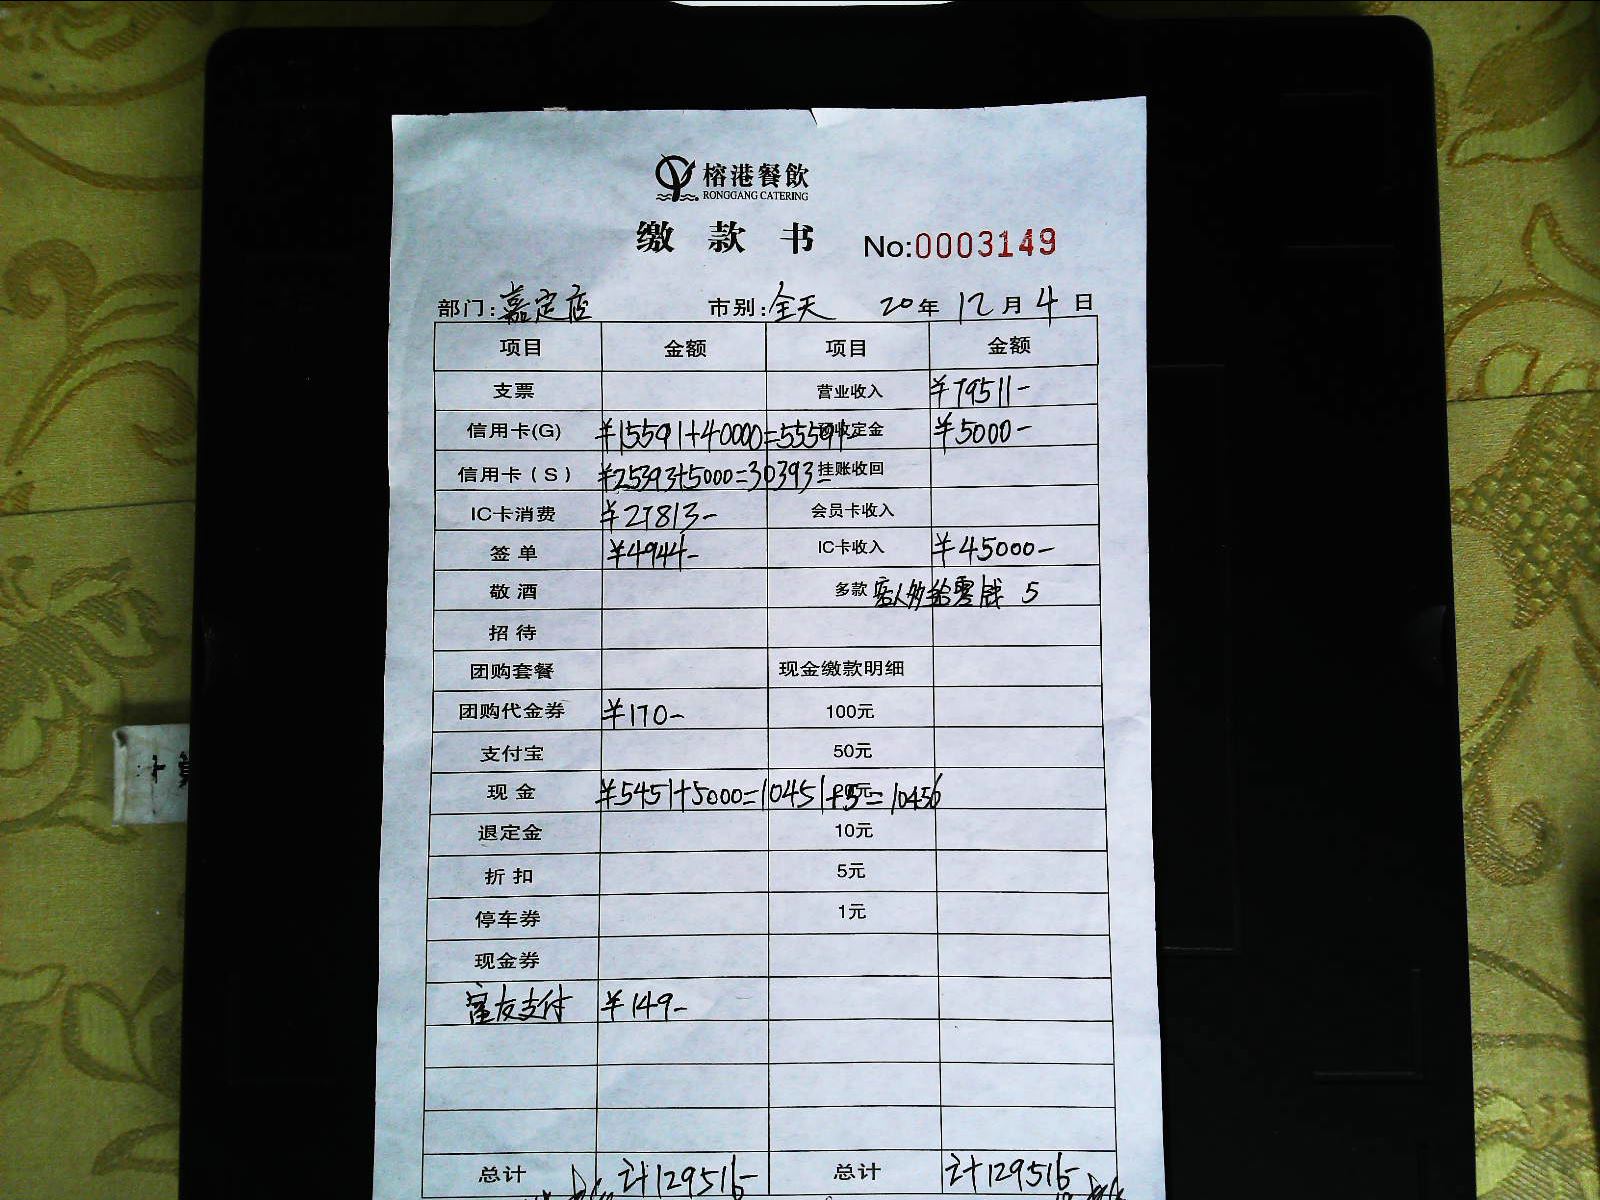 榕港餐飲
RONGGANG CATERING
缴款书 No:0003149
部门:嘉定店 市别:全天 20年12月4日
项目 金额 项目 金额
支票 营业收入 ¥79511-
信用卡(G) ¥15591+40000=55591- 预收定金 ¥5000-
信用卡(S) ¥25393+5000=30393- 挂账收回
IC卡消费 ¥27813- 会员卡收入
签单 ¥4944- IC卡收入 ¥45000-
敬酒 多款 客人多给零钱 5
招待
团购套餐 现金缴款明细
团购代金券 ¥170- 100元
支付宝 50元
现金 ¥5451+5000=10451+5=10456 20元
退定金 10元
折扣 5元
停车券 1元
现金券
富友支付 ¥149-
总计 计129516- 总计 计129516-